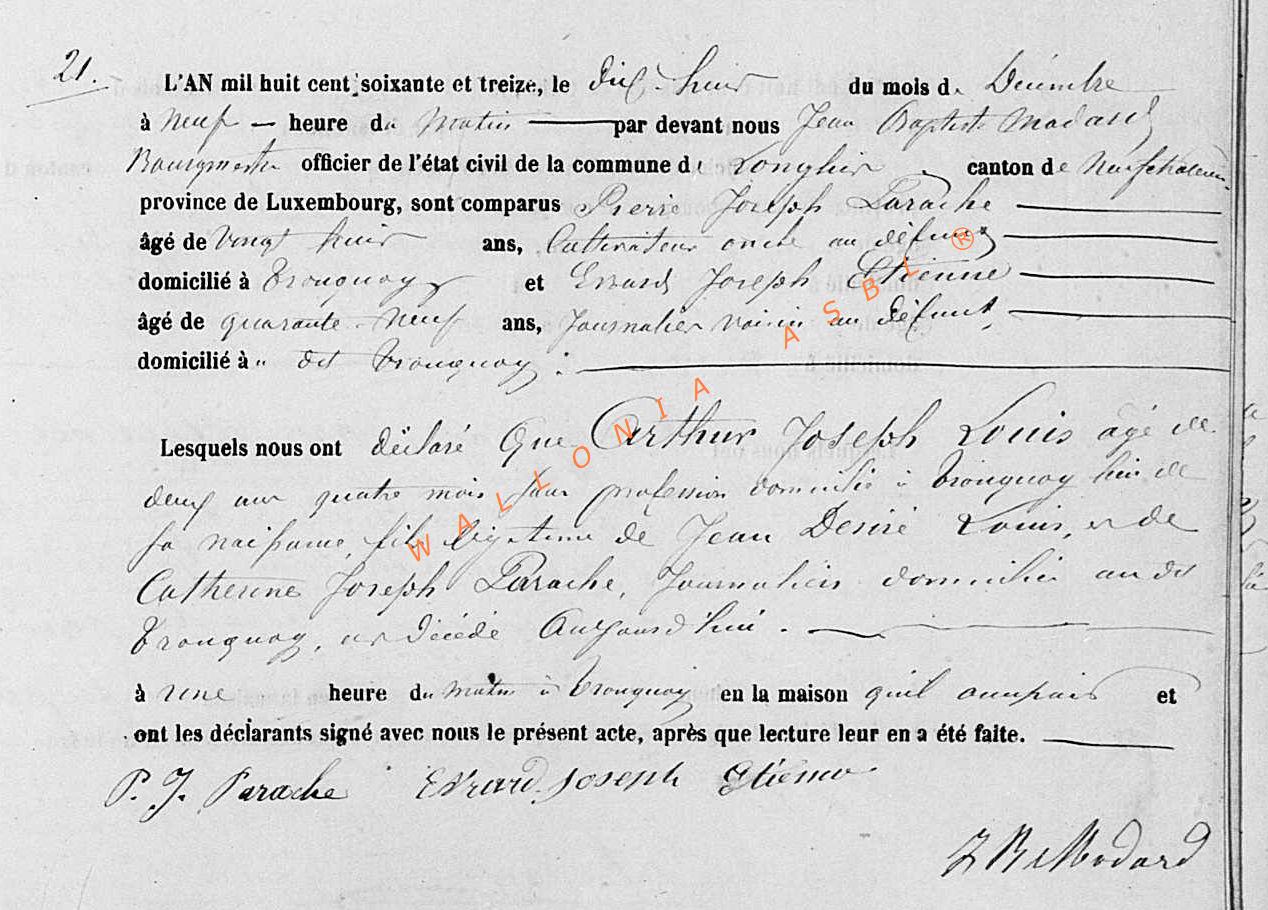 21.
L'AN mil huit cent soixante et treize, le dix-huit du mois de Décembre
à Neuf — heure du Matin — par devant nous Jean Baptiste Modard
Bourgmestre officier de l'état civil de la commune de Longlier canton de Neufchateau
province de Luxembourg, sont comparus Pierre Joseph Parache
âgé de vingt huit ans, Cultivateur oncle au défunt
domicilié à Tronquoy et Evrard Joseph Etienne
âgé de quarante-neuf ans, Journalier voisin au défunt,
domicilié à u dit Tronquoy.
Lesquels nous ont déclaré Que Arthur Joseph Louis agé de
deux ans quatre mois sans profession domicilié à Tronquoy lieu de
sa naissance, fils légitime de Jean Desiré Louis, et de
Catherine Joseph Parache, Journaliers domiciliés au dit
Tronquoy, est décédé Aujourd'hui.
à une heure du matin à Tronquoy en la maison qu'il occupait et
ont les déclarants signé avec nous le présent acte, après que lecture leur en a été faite.
P. J. Parache Evrard Joseph Etienne
J B Modard
WALLONIA ASBL ®